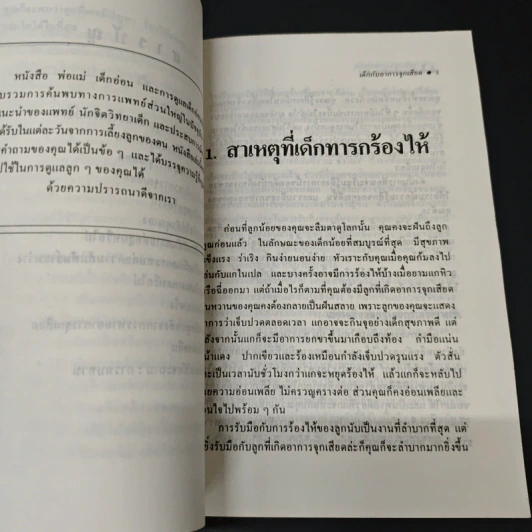 สารบัญ
หนังสือ พ่อแม่ เด็กอ่อน และการดูแลเด็ก
บรวมการค้นพบทางการแพทย์ส่วนใหญ่ในปัจจุบัน
แนะนำของแพทย์ นักจิตวิทยาเด็ก และประสบการณ์
ได้รับในแต่ละวันจากการเลี้ยงลูกของตน หนังสือ
คำถามของคุณได้เป็นข้อ ๆ และได้บรรจุความรู้
ปใช้ในการดูแลลูก ๆ ของคุณได้
ด้วยความปรารถนาดีจากเรา
เด็กกับอาการจุกเสียด ● 1
1. สาเหตุที่เด็กทารกร้องไห้
ก่อนที่ลูกน้อยของคุณจะลืมตาดูโลกนั้น คุณคงจะฝันถึงลูก
คุณก่อนแล้ว ในลักษณะของเด็กน้อยที่สมบูรณ์ที่สุด มีสุขภาพ
แข็งแรง ร่าเริง กินง่ายนอนง่าย หัวเราะกับคุณเมื่อคุณก้มลงไป
ล่นกับแกในเปล และบางครั้งอาจมีการร้องไห้บ้างเมื่อยามแกหิว
รือฉี่ออกมา แต่ถ้าเมื่อไรก็ตามที่คุณต้องมีลูกที่เกิดอาการจุกเสียด
นหวานของคุณคงต้องกลายเป็นฝันสลาย เพราะลูกของคุณจะแสดง
าการว่าเจ็บปวดตลอดเวลา แกอาจจะกินจุอย่างเด็กสุขภาพดี แต่
ลังจากนั้นแกก็จะมีอาการยกขาขึ้นมาเกือบถึงท้อง กำมือแน่น
น้าแดง ปากเขียวและร้องเหมือนกำลังเจ็บปวดรุนแรง ตัวสั่น
ละเป็นเวลานับชั่วโมงกว่าแกจะหยุดร้องไห้ แล้วแกก็จะหลับไป
ยความอ่อนเพลีย ไม่ครวญครางต่อ ส่วนคุณก็คงอ่อนเพลียและ
อนใจไปพร้อม ๆ กัน
การรับมือกับการร้องไห้ของลูกนับเป็นงานที่ลำบากที่สุด แต่
ยิ่งรับมือกับลูกที่เกิดอาการจุกเสียดล่ะก็คุณก็จะลำบากมากยิ่งขึ้น